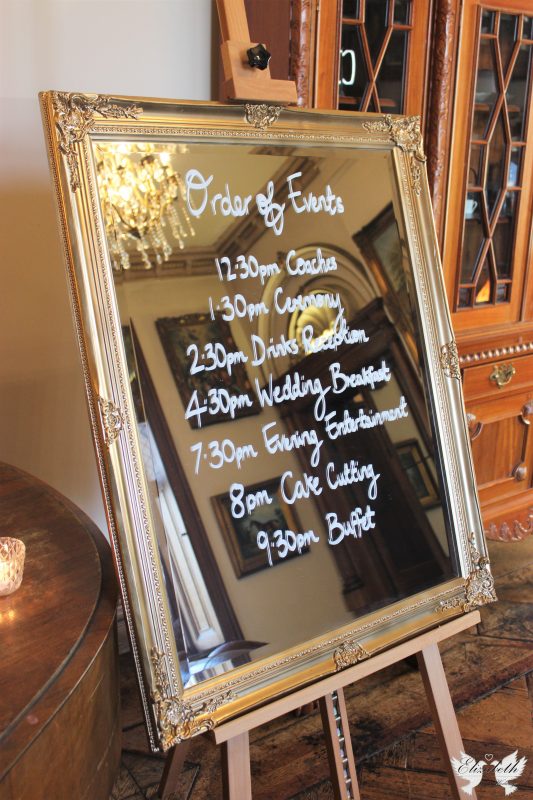 Order of Events
12:30pm Coaches
1:30pm Ceremony
2:30pm Drinks Reception
4:30pm Wedding Breakfast
7:30pm Evening Entertainment
8pm Cake Cutting
9:30pm Buffet
Elizabeth